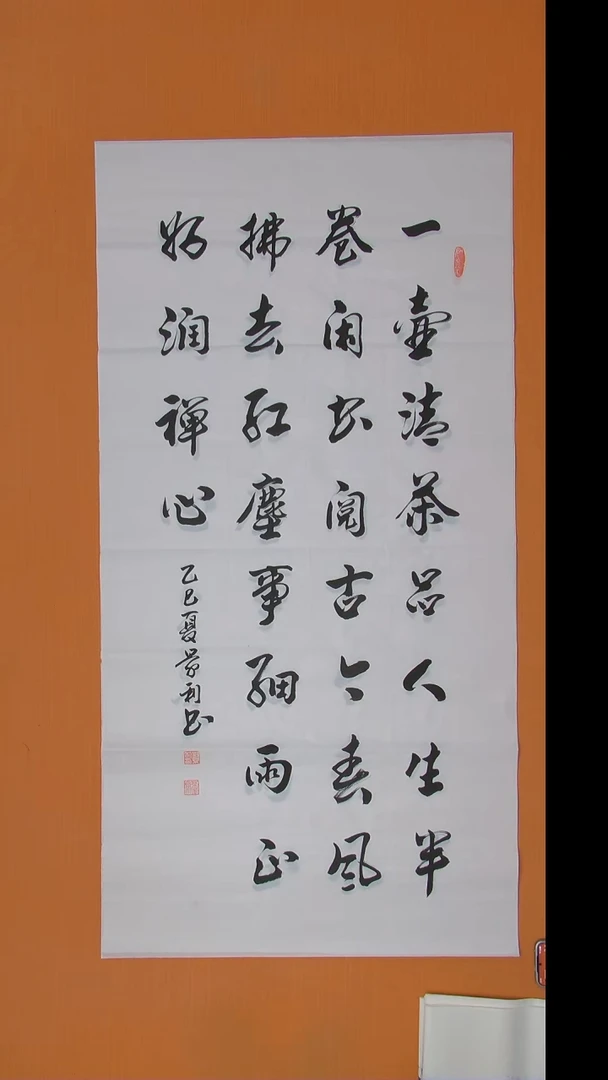 一壷清茶品人生半
卷闲书阅古今春风
拂去红塵事细雨正
好润禅心
乙巳夏景利书